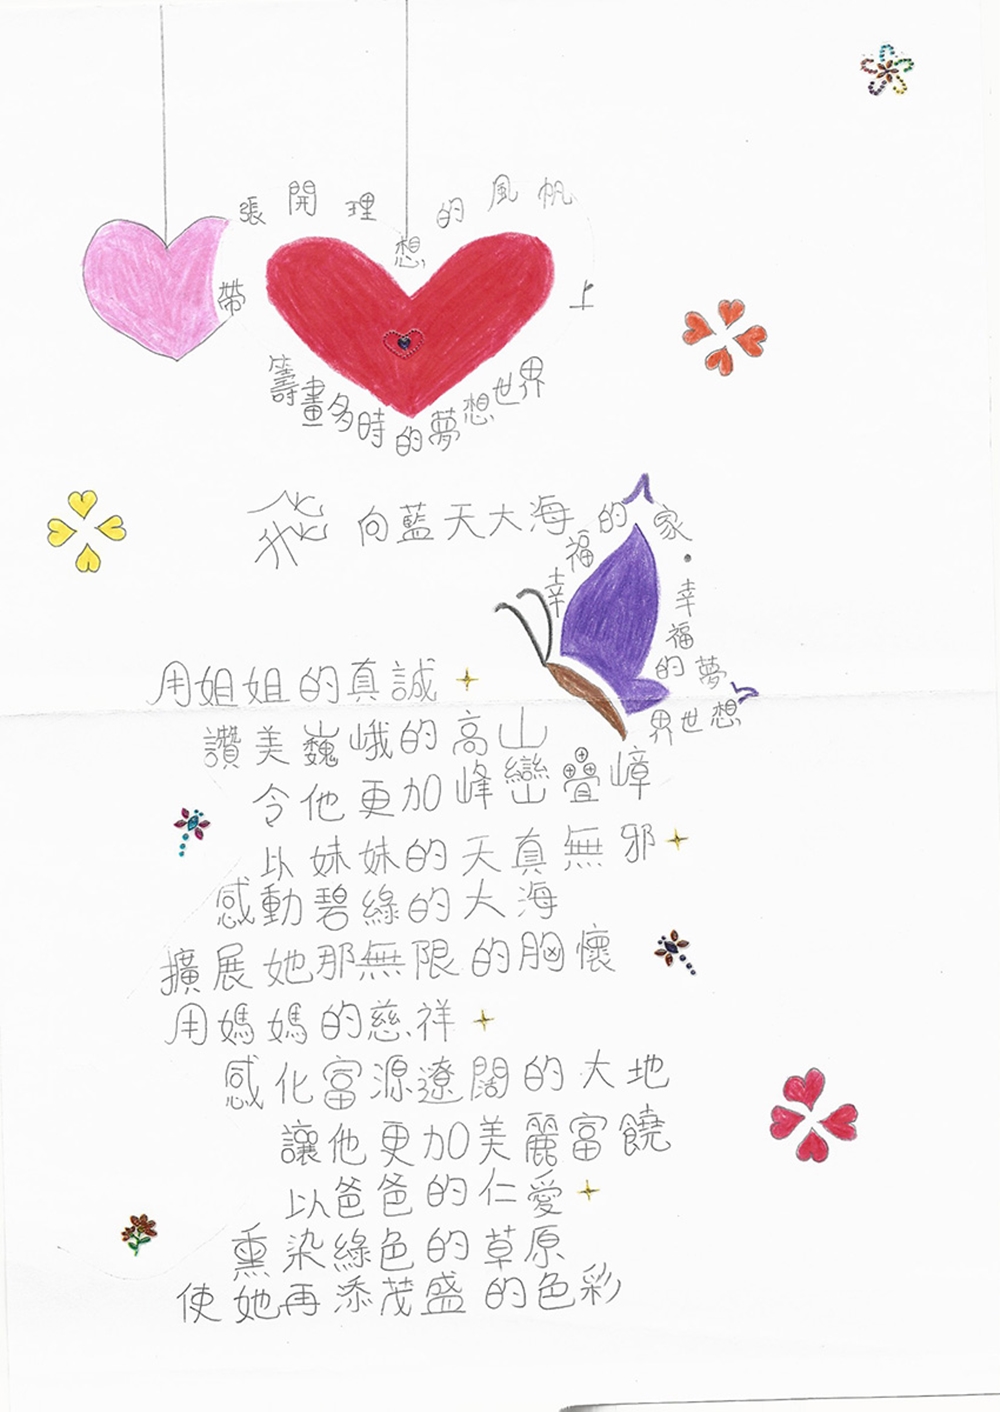 張開理想的風帆
帶上
籌畫多時的夢想世界
飛向藍天大海的家.
幸福
幸福的夢想世界
用姐姐的真誠
讚美巍峨的高山
令他更加峰巒疊嶂
以妹妹的天真無邪
感動碧綠的大海
擴展她那無限的胸懷
用媽媽的慈祥
感化富源遼闊的大地
讓他更加美麗富饒
以爸爸的仁愛
熏染綠色的草原
使她再添茂盛的色彩